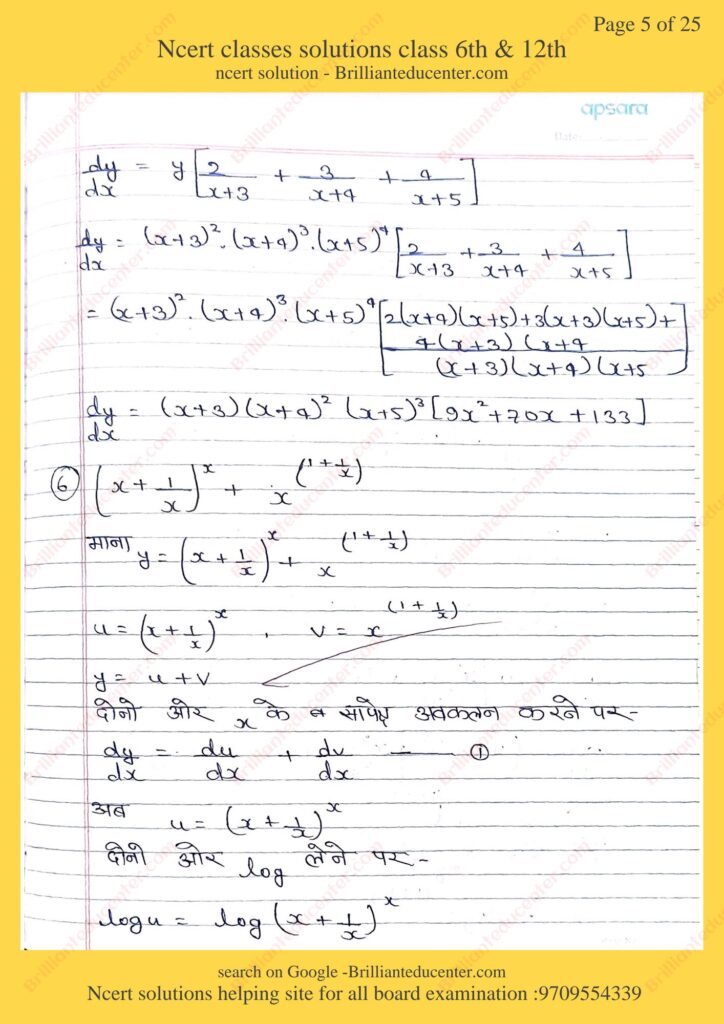 Page 5 of 25
Ncert classes solutions class 6th & 12th
ncert solution - Brillianteducenter.com
apsara
Date:
dy/dx = y [2/(x+3) + 3/(x+4) + 4/(x+5)]
dy/dx = (x+3)². (x+4)³. (x+5)⁴ [2/(x+3) + 3/(x+4) + 4/(x+5)]
= (x+3)². (x+4)³. (x+5)⁴ [2(x+4)(x+5)+3(x+3)(x+5)+
4(x+3)(x+4
(x+3)(x+4)(x+5]
dy/dx = (x+3)(x+4)² (x+5)³ [9x²+70x+133]
⑥ (x + 1/x)^x + x^(1 + 1/x)
माना y = (x + 1/x)^x + x^(1 + 1/x)
u = (x + 1/x)^x , v = x^(1 + 1/x)
y = u + v
दोनो ओर x के सापेक्ष अवकलन करने पर-
dy/dx = du/dx + dv/dx — ①
अब u = (x + 1/x)^x
दोनो ओर log लेने पर-
log u = log (x + 1/x)^x
search on Google -Brillianteducenter.com
Ncert solutions helping site for all board examination :9709554339